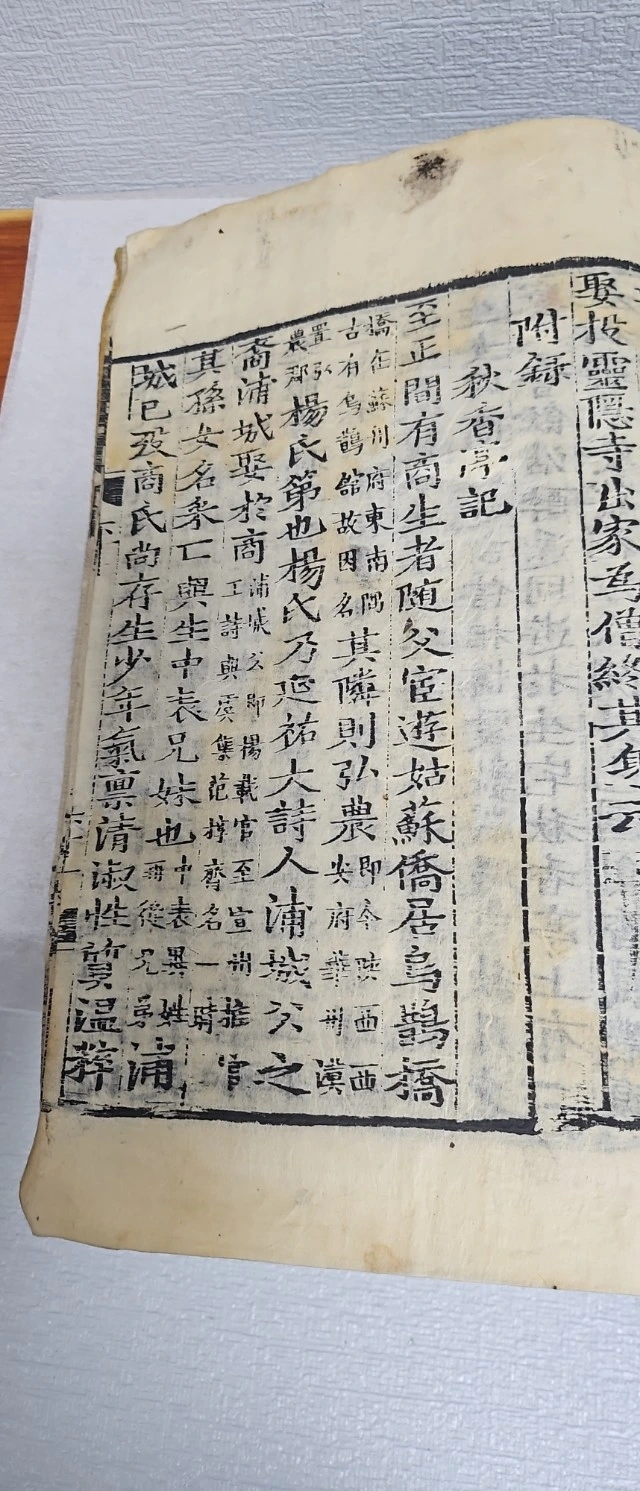 娶投靈隱寺出家為僧終其身云
附録
秋香亭記
至正間有商生者随父宦遊姑蘇僑居烏鵲橋
橋在蘇州府東南隅
古有烏鵲館故因名
其隣則弘農
即今陝西西
安府華州漢
置弘
農郡
楊氏第也楊氏乃延祐大詩人浦城公之
裔浦城娶於商
浦城公即楊載官至宣州推官
工詩與虞集范梈齊名一時
其孫女名采々與生中表兄妹也
中表異姓
再從兄弟
浦
城已歿商氏尚存生少年氣稟清淑性質温粹